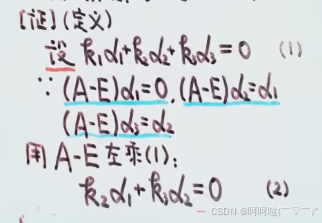 [证](定义)
设 k₁α₁+k₂α₂+k₃α₃=0 (1)
∵(A-E)α₁=0,(A-E)α₂=α₁
(A-E)α₃=α₂
用A-E左乘(1):
k₂α₁+k₃α₂=0 (2)
CSDN @呵呵哒(￣▽￣)"